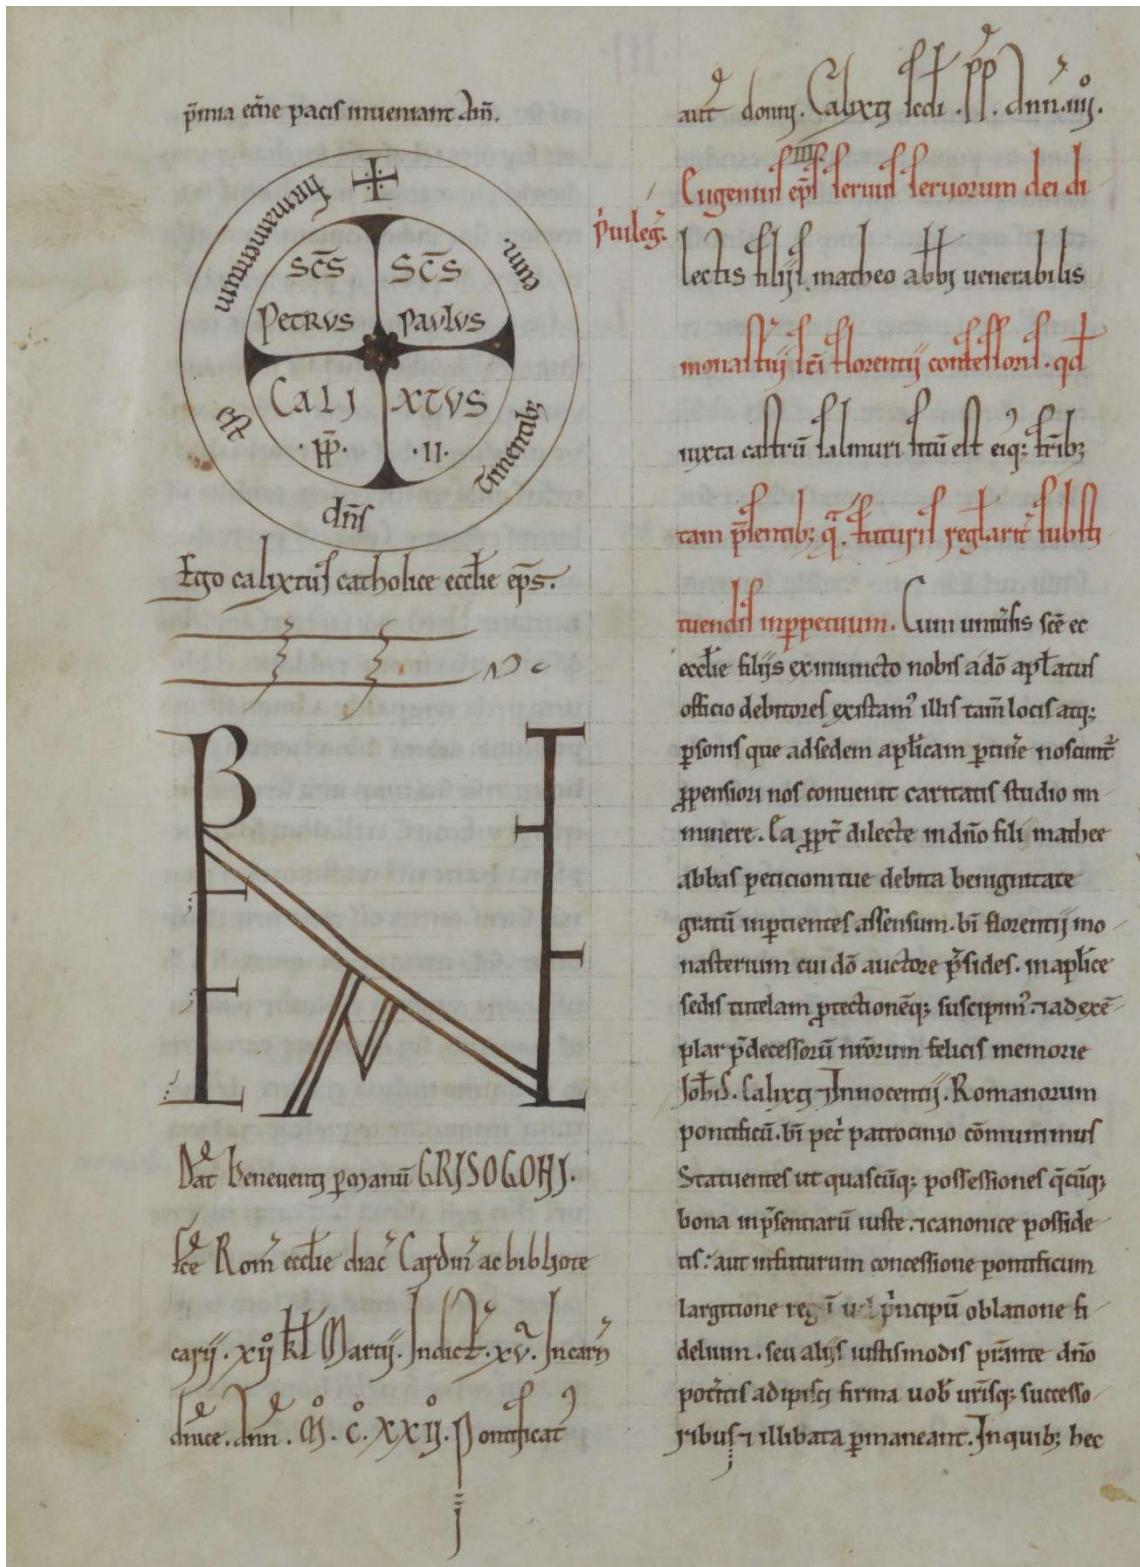 p̄mia et̄ne pacis inueniant Am̄.
✝ firmamentum est dn̄s timentibꝫ eum
SC̄S PETRVS
SC̄S PAVLVS
CALI XTVS
·PP̄· ·II·
Ego calixtus catholice eccl̄ie ep̄s.
Dat Beneuentı ꝑ manū GRISOGONI.
sc̄e Rom̄ eccl̄ie diac̄ Cardin̄ ac bibliote
carij. xij kł Martij. Indict̄. xv. Incarn̄
diuīce. Ann̄. M̊. C̊. XXIJ̊. Pontificat
aut̄ domni. Calixti scdi. PP̄. Ann̄. iiij̊.
Eugenius ep̄s seruus seruorum dei di
p̓uileg̓.
III
lectis filijs matheo abb̄i uenerabilis
monast̄ij sc̄i florentij confessoris. qd̄
iuxta castrū salmuri sitū est eiꝰqꝫ fr̄ibꝫ
tam p̄sentibꝫ q̄. futuris regl̄arit̄ substi
tuendis inꝑpetuum. Cum uniūsis sc̄e ec
eccl̄ie filijs ex iniuncto nobis a dō apl̄atus
officio debitores existamꝰ illis tam̄ locis atqꝫ
ꝑsonis que ad sedem apl̄icam ꝑtin̄e noscunt̄
ꝓpensiori nos conuenit caritatis studio im
minere. Ea ꝓpt̄ dilecte in dn̄o fili mathee
abbas peticioni tue debita benignitate
gratū inꝑcientes assensum. bī florentij mo
nasterium cui dō auctore p̄sides. in apl̄ice
sedis tutelam ꝓtectionēqꝫ suscipimꝰ. ⁊ ad exē
plar p̄decessorū nr̄orum felicis memorie
Joh̄is. Calixti ⁊ Innocentij. Romanorum
pontificū. bī pet̄ patrocinio cōmunimus
Statuentes ut quascūqꝫ possessiones q̄cūqꝫ
bona inp̄sentiarū iuste. ⁊ canonice posside
tis: aut in futurum concessione pontificum
largitione regū ul̄ p̓ncipū oblatione fi
delium. seu alijs iustis modis p̄stante dn̄o
pot̄itis adipisci firma uob̄ ur̄isqꝫ successo
ribus ⁊ illibata ꝑmaneant. In quibꝫ hec